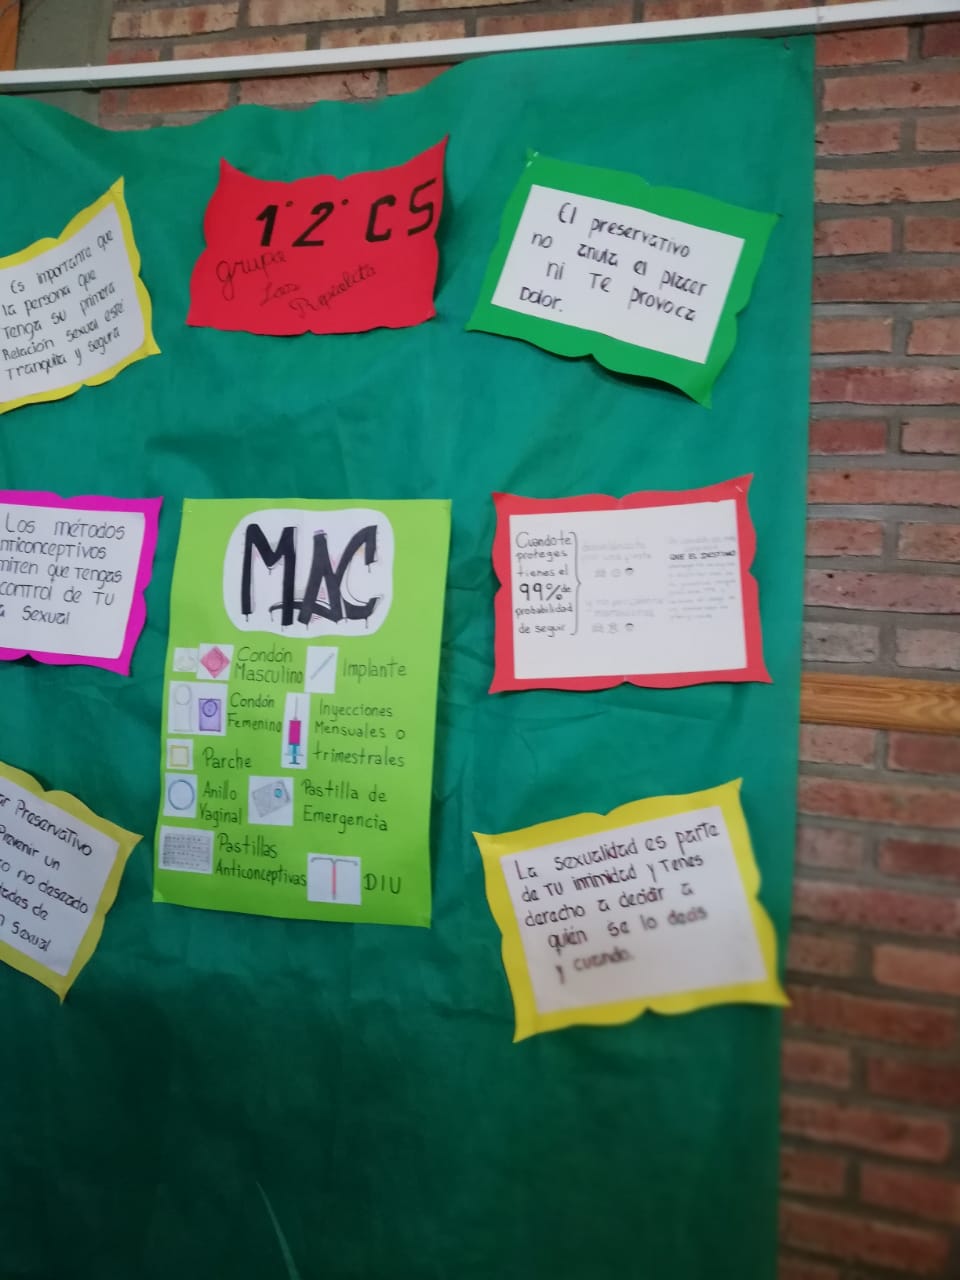 Es importante que
la persona que
Tenga su primera
Relación Sexual esté
Tranquila y segura
1° 2° CS
Grupo
Las
El preservativo
no anula el placer
ni Te provoca
Dolor.
Los métodos
nticonceptivos
miten que Tengas
control de Tu
a Sexual
MAC
Condón
Masculino
Implante
Condón
Femenino
Inyecciones
Mensuales o
trimestrales
Parche
Anillo
Vaginal
Pastilla de
Emergencia
Pastillas
Anticonceptivas
DIU
Cuando te
proteges
tienes el
99% de
probabilidad
de seguir
QUE EL DESTINO
ar Preservativo
Prevenir un
o no deseado
dades de
n Sexual
La sexualidad es parte
de Tu intimidad y Tenes
derecho a decidir a
quién se lo decis
y cuando.